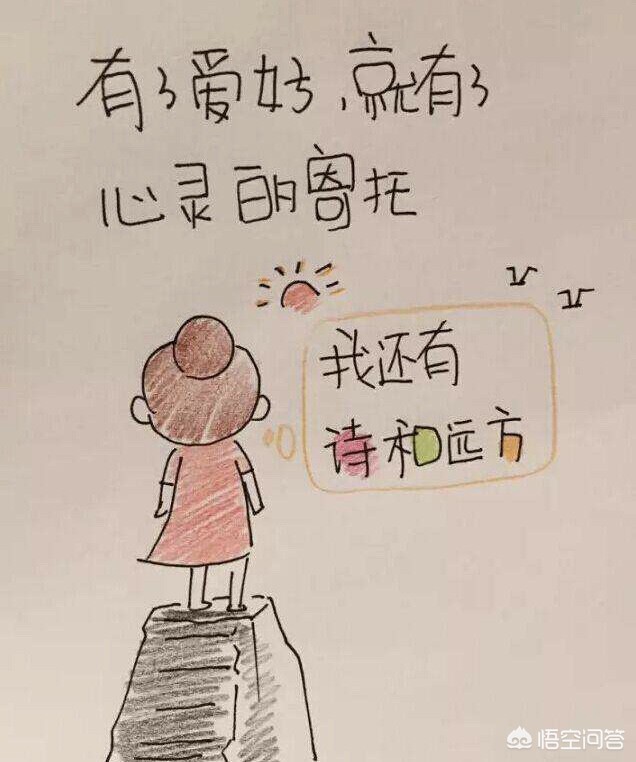 有了爱好、就有了
心灵的寄托
我还有
诗和远方
悟空问答